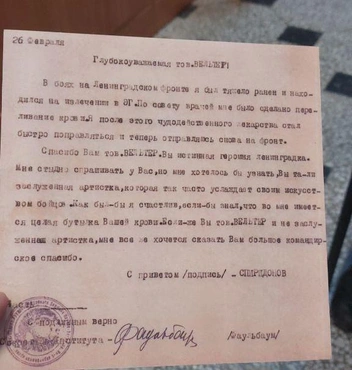 26 Февраля
Глубокоуважаемая тов.ВЕЛЬТЕР!
В боях на Ленинградском фронте я был тяжело ранен и нахо-
дился на излечении в ЭГ.По совету врачей мне было сделано пере-
ливание крови.Я после этого чудодейственного лекарства стал
быстро поправляться и теперь отправляюсь снова на фронт.
Спасибо Вам тов.ВЕЛЬТЕР.Вы истинная героиня ленинградка.
Мне стыдно спрашивать у Вас,но мне хотелось бы узнать,Вы та-ли
заслуженная артистка,которая так часто услаждает своим искусст-
вом бойцов.Как бы-бы я счастлив,если-бы знал,что во мне имеет-
ся целая бутылка Вашей крови.Если-же Вы тов.ВЕЛЬТЕР и не заслу-
женная артистка,мне все же хочется сказать Вам большое командир-
ское спасибо.
С приветом /подпись/ - СПИРИДОНОВ
С подлинным верно
института -
/Фаульбаум/